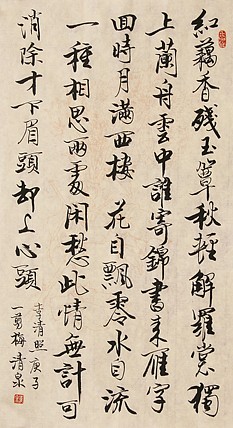 紅藕香殘玉簟秋輕解羅裳獨
上蘭舟雲中誰寄錦書来雁字
回時月滿西樓 花自飄零水自流
一種相思兩處閑愁此情無計可
消除才下眉頭却上心頭
李清照 庚子
一剪梅 清泉